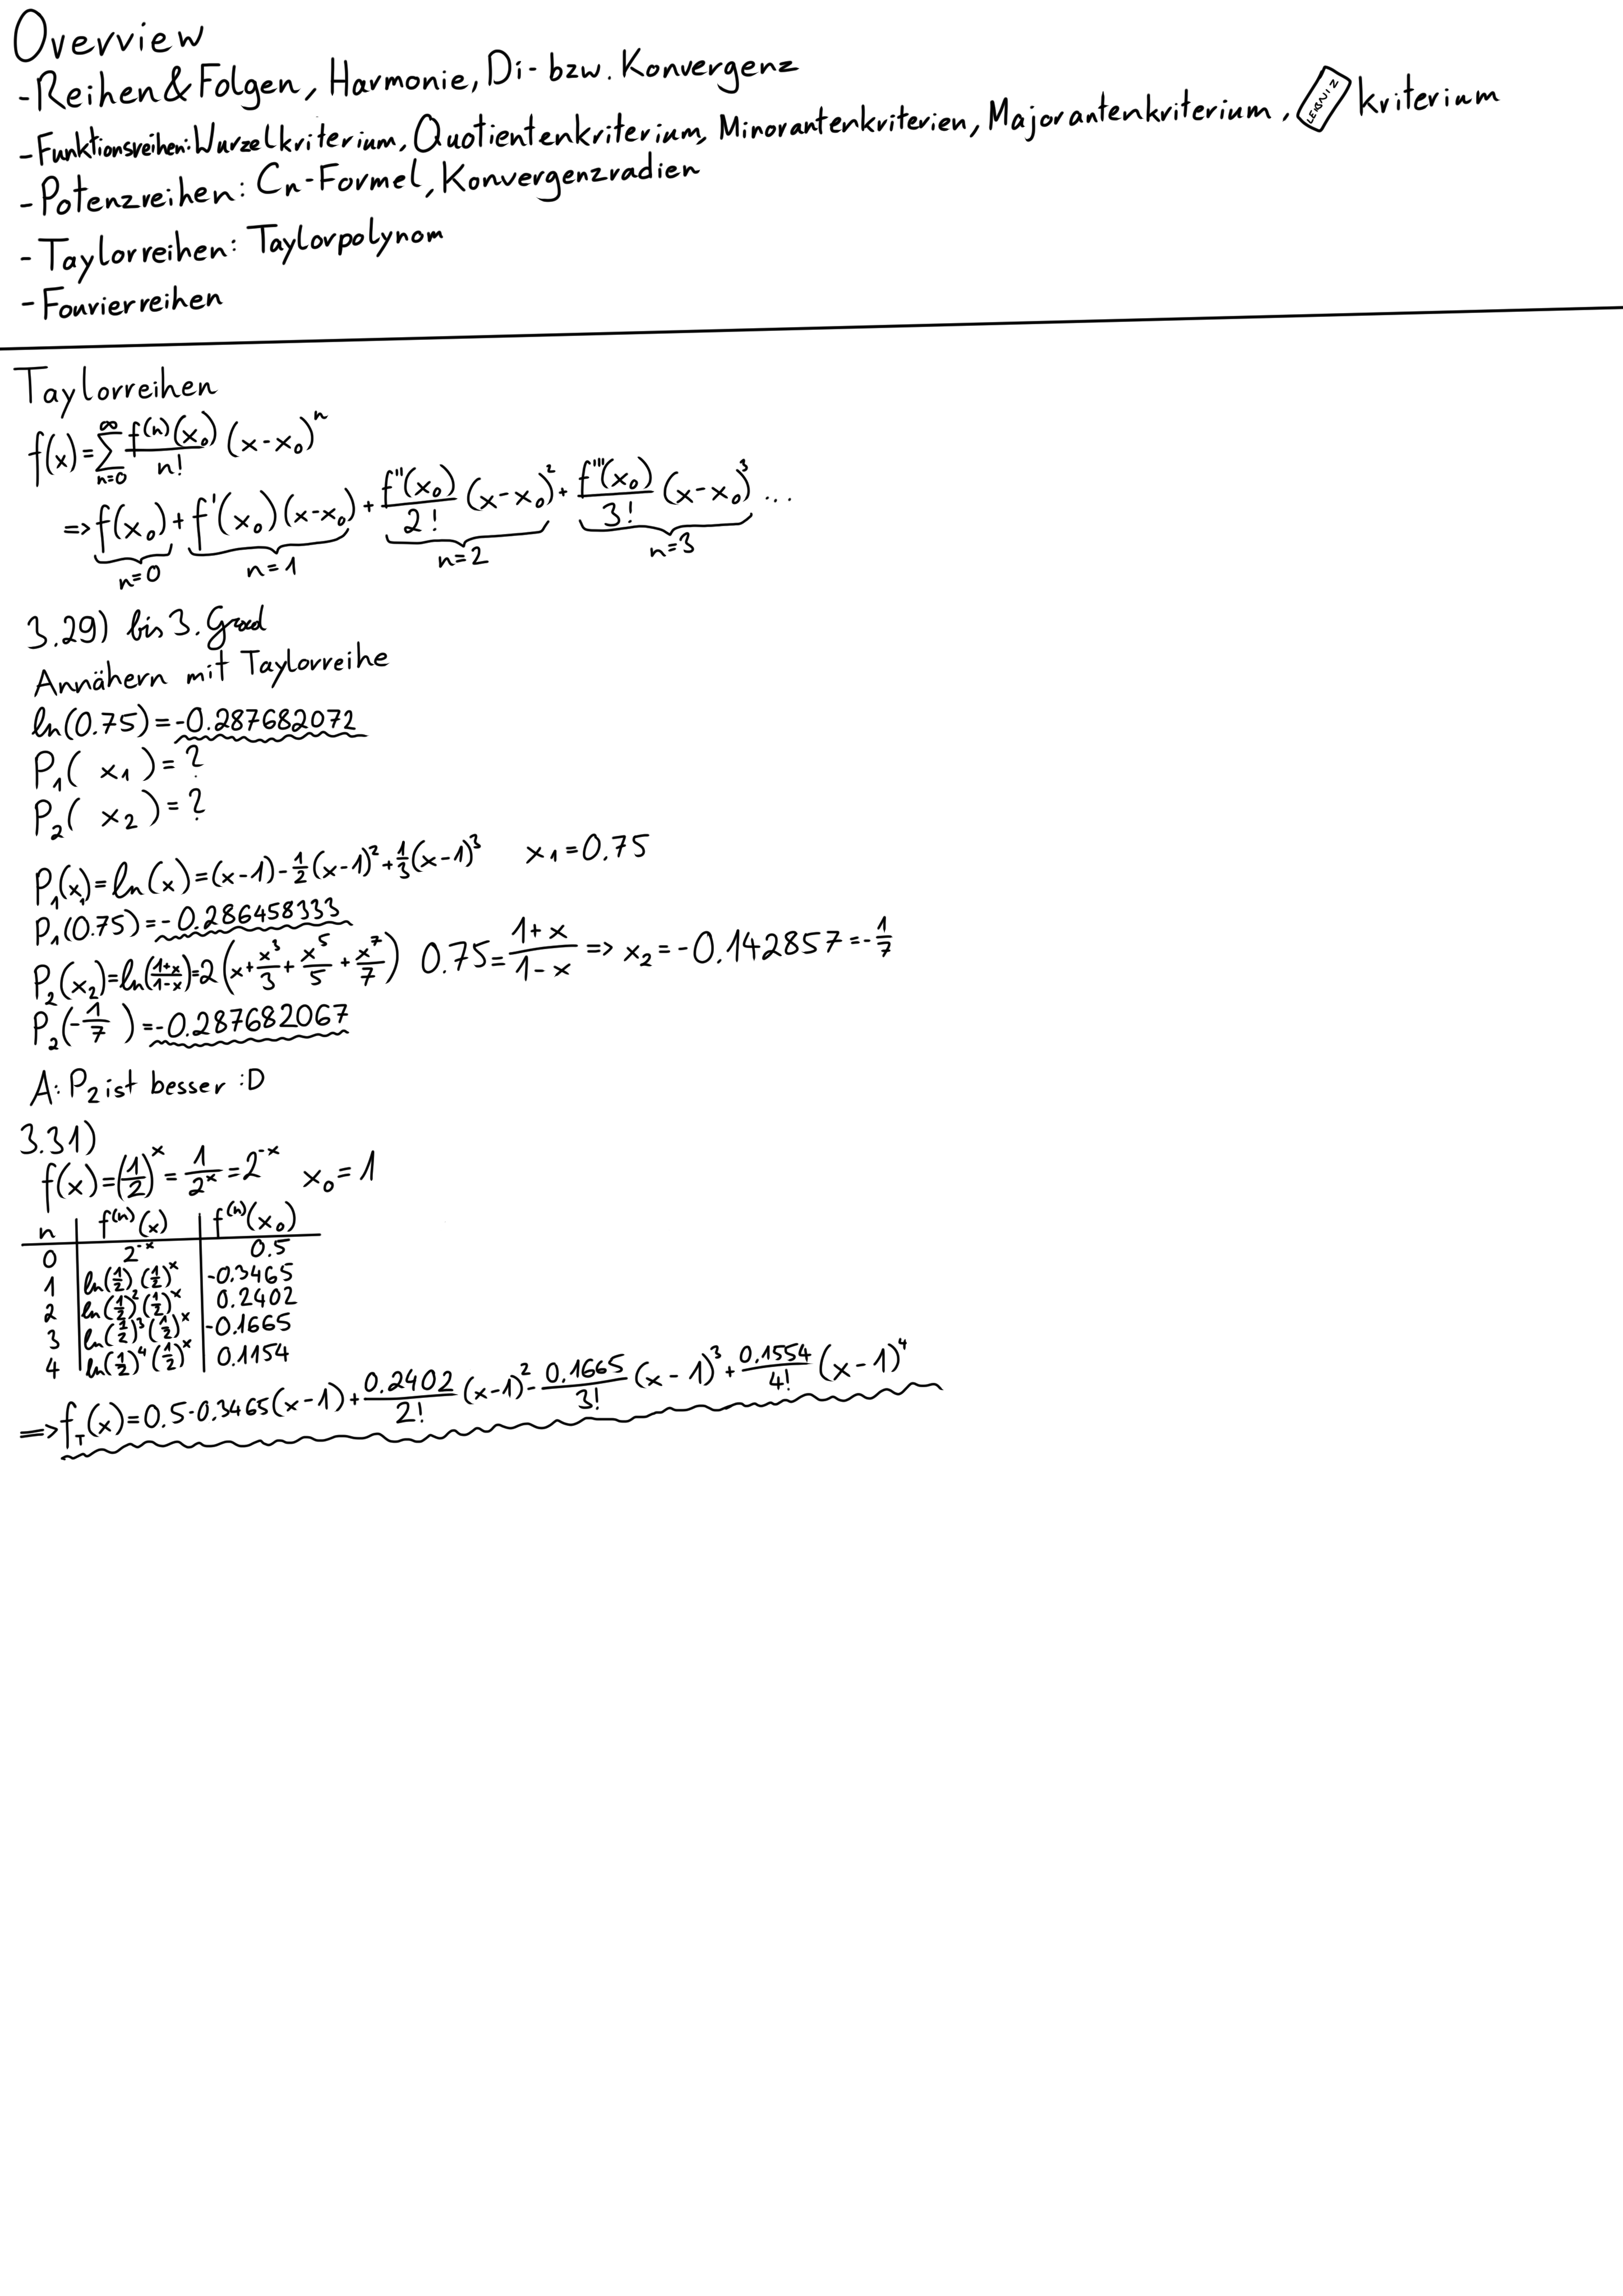 Overview
-Reihen & Folgen, Harmonie, Di- bzw. Konvergenz
-Funktionsreihen: Wurzelkriterium, Quotientenkriterium, Minorantenkriterien, Majorantenkriterium, LEIBNIZ kriterium
-Potenzreihen: Cn-Formel, Konvergenzradien
-Taylorreihen: Taylorpolynom
-Fourierreihen
Taylorreihen
f(x)=∑_{n=0}^{∞} f^(n)(x₀)/n! (x-x₀)^n
=> f(x₀) + f'(x₀)(x-x₀) + f''(x₀)/2! (x-x₀)² + f'''(x₀)/3! (x-x₀)³ ...
n=0 n=1 n=2 n=3
3.29) bis 3. Grad
Annähern mit Taylorreihe
ln(0.75)=-0.287682072
P₁( x₁ )=?
P₂( x₂ )=?
P₁(x₁)=ln(x)=(x-1)-1/2(x-1)²+1/3(x-1)³ x₁=0.75
P₁(0.75)=-0.286458333
P₂(x₂)=ln((1+x)/(1-x))=2(x+x³/3+x⁵/5+x⁷/7) 0.75=(1+x)/(1-x) => x₂=-0.142857=-1/7
P₂(-1/7)=-0.287682067
A: P₂ ist besser :D
3.31)
f(x)=(1/2)^x=1/2^x=2^-x x₀=1
n | f^(n)(x) | f^(n)(x₀)
0 | 2^-x | 0.5
1 | ln(1/2)(1/2)^x | -0.3465
2 | ln(1/2)²(1/2)^x | 0.2402
3 | ln(1/2)³(1/2)^x | -0.1665
4 | ln(1/2)⁴(1/2)^x | 0.1154
=> f_T(x)=0.5-0.3465(x-1)+0.2402/2!(x-1)²-0.1665/3!(x-1)³+0.1554/4!(x-1)⁴